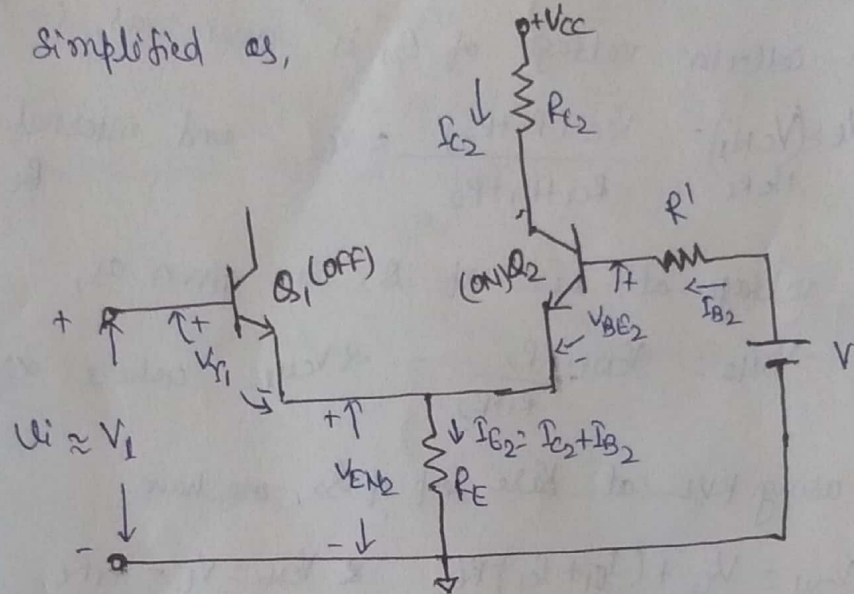 Simplified as,
+Vcc
Ic2 ↓
Rc2
R'
Q1 (OFF)
(ON) Q2
+
+
+
IB2
Vγ1
VBE2
-
-
V
+
Vi ≈ V1
VEN2
↓ IE2 = Ic2 + IB2
RE
-
-